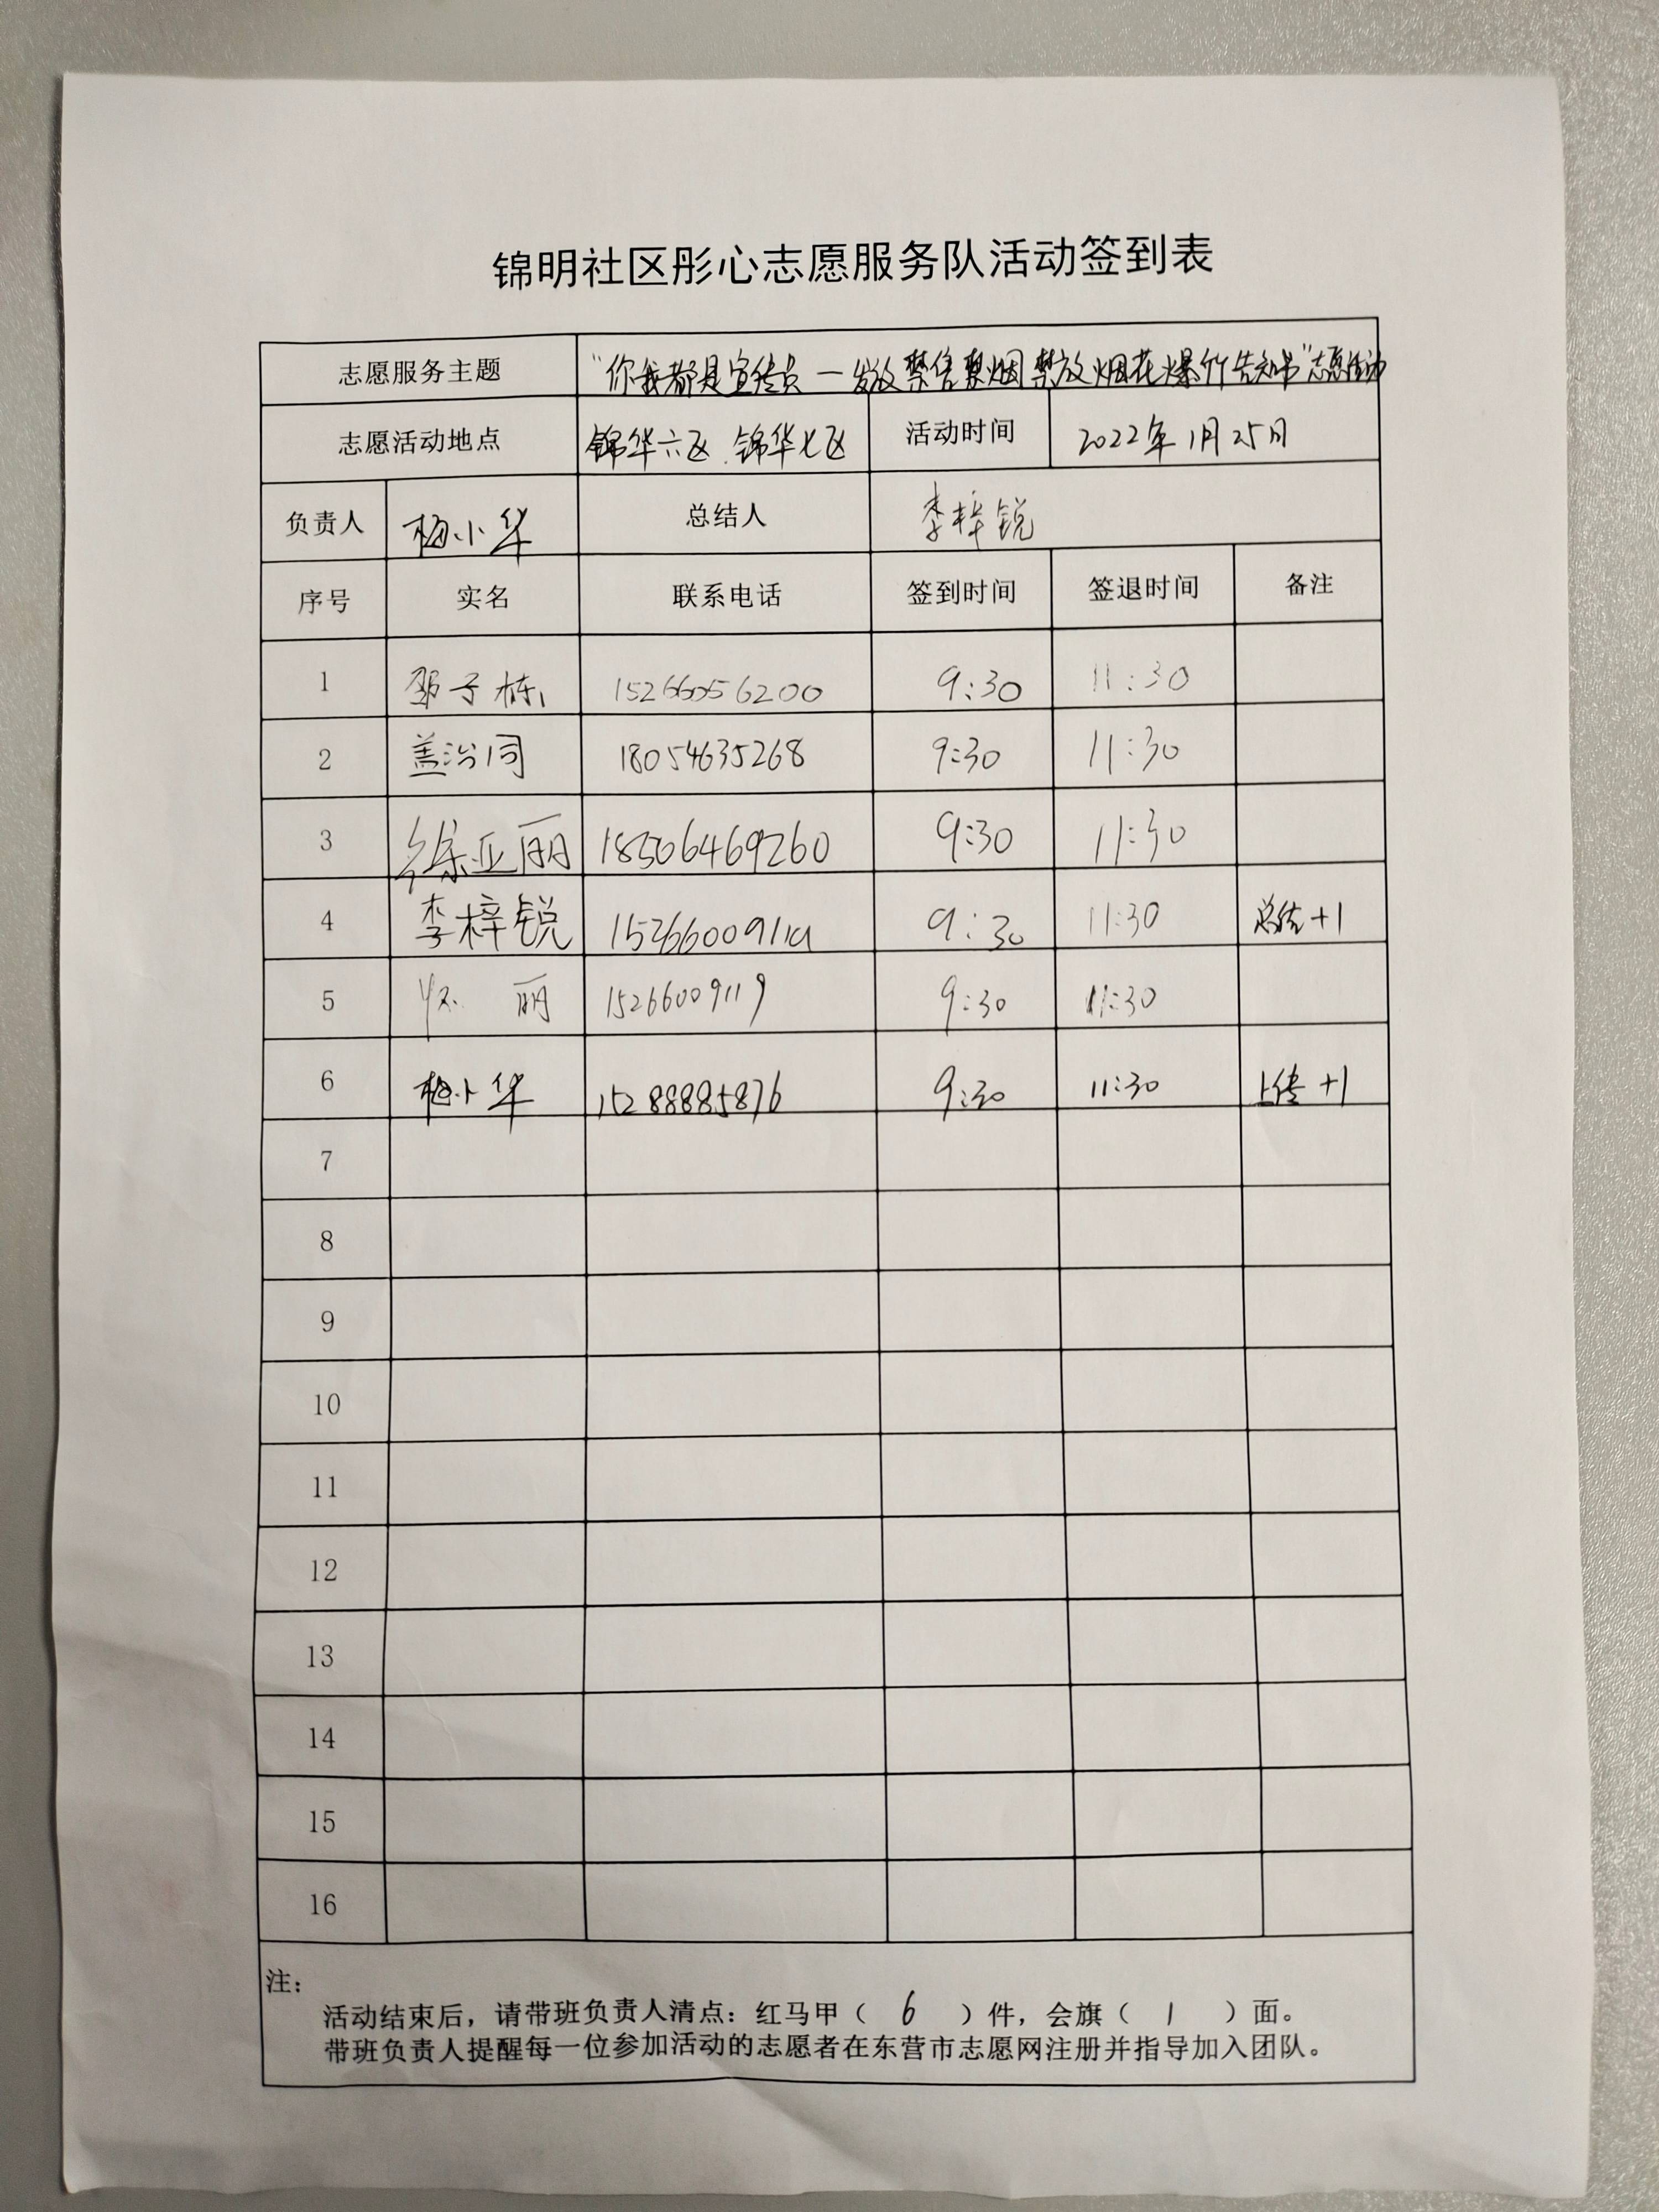 锦明社区彤心志愿服务队活动签到表
志愿服务主题 “你我都是宣传员—发放禁售禁燃禁放烟花爆竹告知书”志愿活动
志愿活动地点 锦华六区、锦华七区 活动时间 2022年1月25日
负责人 梅小华 总结人 李梓锐
序号 实名 联系电话 签到时间 签退时间 备注
1 子栋 15266056200 9:30 11:30
2 盖汾同 18054635268 9:30 11:30
3 徐亚丽 18506469260 9:30 11:30
4 李梓锐 15266009119 9:30 11:30 总结+1
5 丽 15266009119 9:30 11:30
6 梅小华 15288885876 9:30 11:30 上传+1
7
8
9
10
11
12
13
14
15
16
注：
活动结束后，请带班负责人清点：红马甲（ 6 ）件，会旗（ 1 ）面。
带班负责人提醒每一位参加活动的志愿者在东营市志愿网注册并指导加入团队。